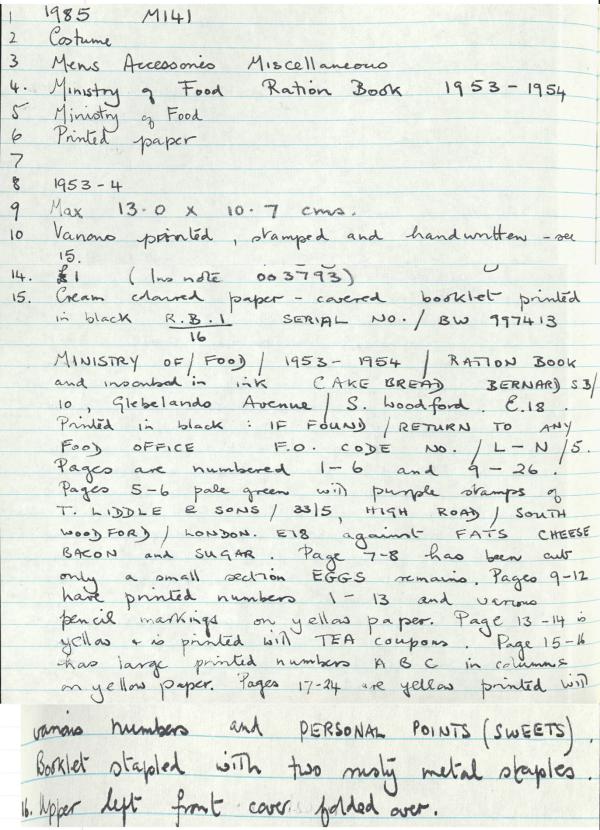 1 1985 M141
2 Costume
3 Mens Accessories Miscellaneous
4. Ministry of Food Ration Book 1953-1954
5 Ministry of Food
6 Printed paper
7
8 1953-4
9 Max 13.0 x 10.7 cms.
10 Various printed, stamped and handwritten - see
15.
14. £1 (Ins note 003793)
15. Cream coloured paper-covered booklet printed
in black R.B.1 SERIAL NO./ BW 997413
16
MINISTRY OF/ FOOD/ 1953-1954 / RATION BOOK
and inscribed in ink CAKEBREAD BERNARD S B/
10, Glebelands Avenue/ S. Woodford. E.18.
Printed in black: IF FOUND/ RETURN TO ANY
FOOD OFFICE F.O. CODE NO. / L-N/5.
Pages are numbered 1-6 and 9-26.
Pages 5-6 pale green with purple stamps of
T. LIDDLE & SONS/ 33/5, HIGH ROAD/ SOUTH
WOODFORD/ LONDON. E18 against FATS CHEESE
BACON and SUGAR. Page 7-8 has been cut
only a small section EGGS remains. Pages 9-12
have printed numbers 1-13 and various
pencil markings on yellow paper. Page 13-14 is
yellow + is printed with TEA coupons. Page 15-16
has large printed numbers A B C in columns
on yellow paper. Pages 17-24 are yellow printed with
various numbers and PERSONAL POINTS (SWEETS).
Booklet stapled with two rusty metal staples.
16. Upper left front cover folded over.